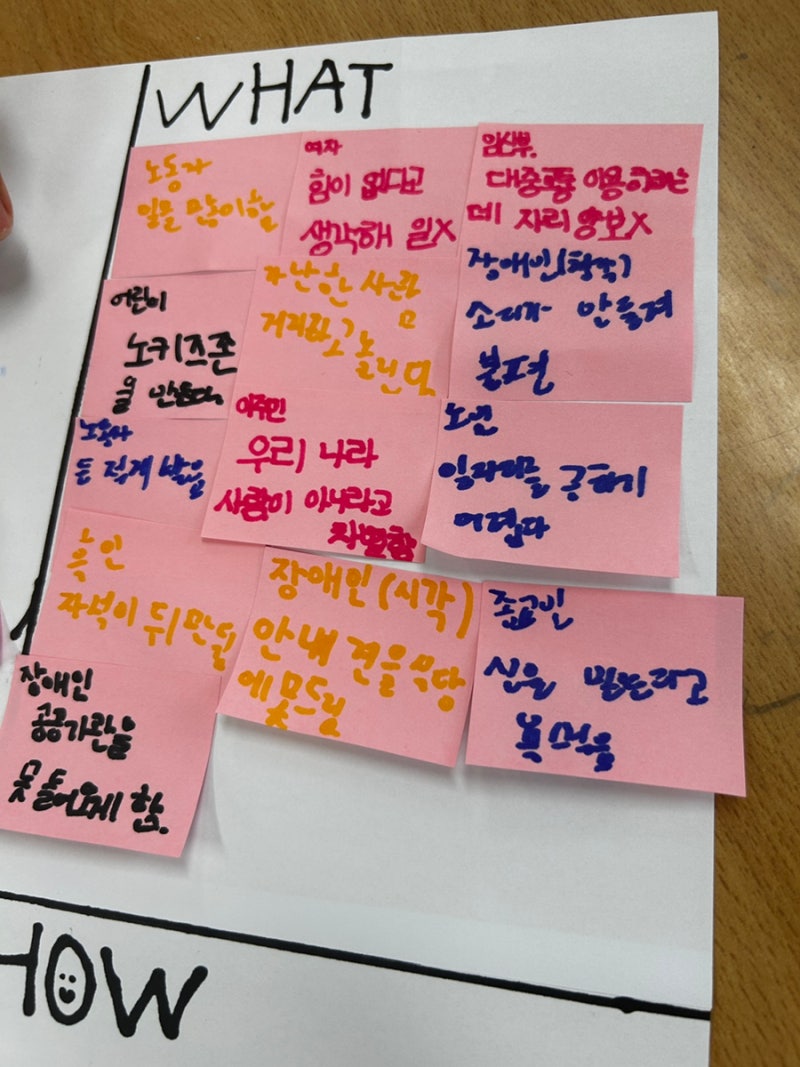 WHAT
노동자
일을 많이함
여자
힘이 없다고
생각해 일X
임산부.
대중교통 이용하려는
데 자리 양보X
어린이
노키즈존
을 만든다.
가난한 사람
거지라고 놀린다
장애인(청각)
소리가 안들려
불편
노동자
돈 적게 받음
이주민
우리 나라
사람이 아니라고
차별함
노인
일자리를 구하기
어렵다
흑인
좌석이 뒤만됨
장애인(시각)
안내견을 식당
에 못드림
종교인
신을 믿는다고
욕먹음
장애인
공공기관을
못 들어오게 함.
HOW